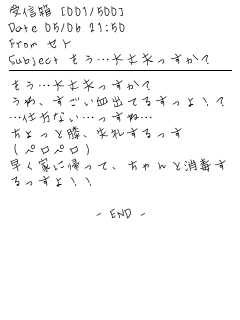 受信箱 [001/500]
Date 05/06 21:50
From セト
Subject もう…大丈夫っすか?
もう…大丈夫っすか?
うわ、すごい血出てるすっよ!?
…仕方ない…っすね…
ちょっと膝、失礼するっす
(ペロペロ)
早く家に帰って、ちゃんと消毒す
るっすよ!!
- END -